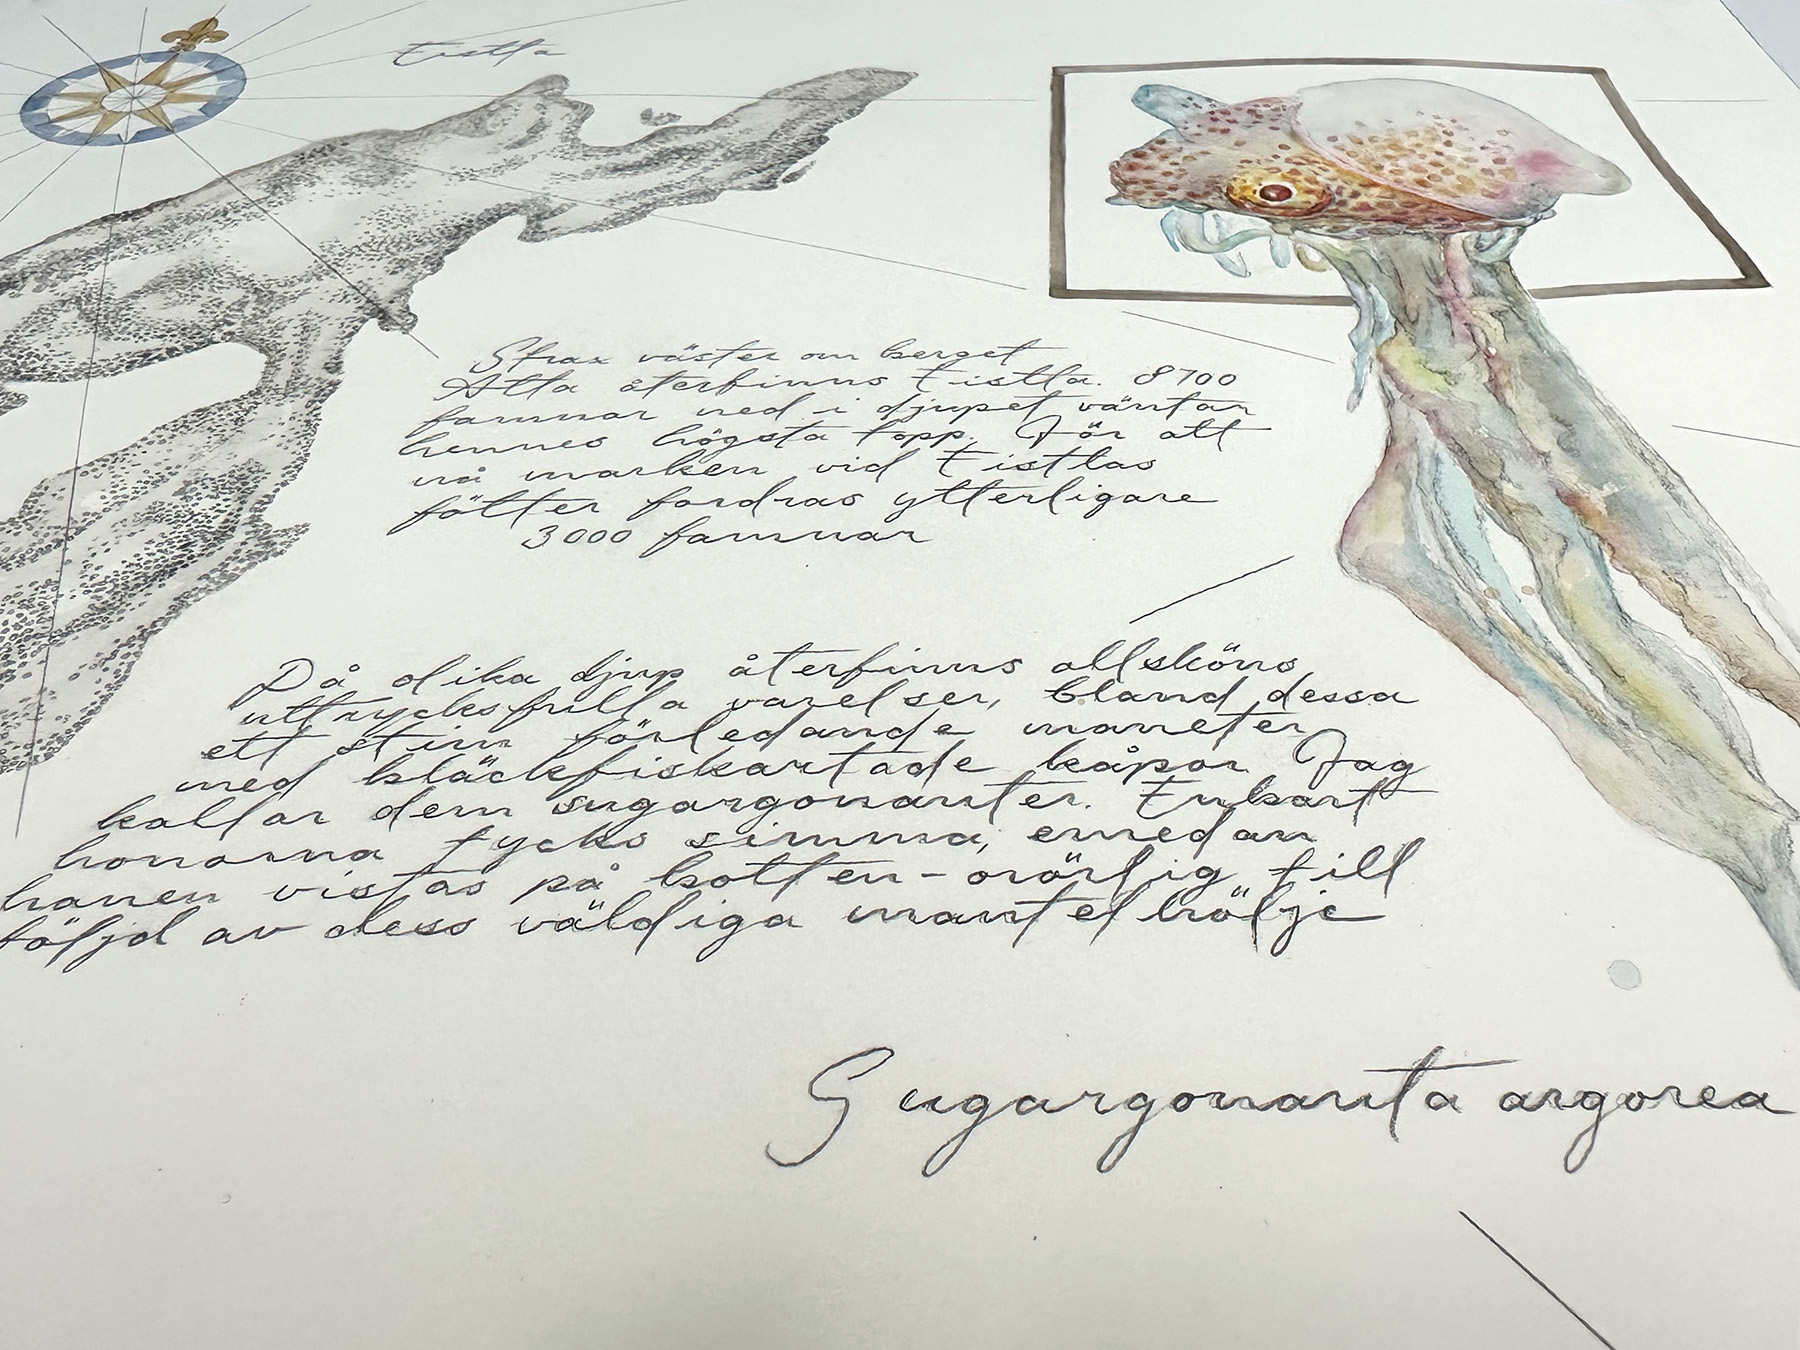 Tistla
Strax väster om berget
Atla återfinns Tistla. 8700
famnar ned i djupet väntar
hennes högsta topp. För att
nå marken vid Tistlas
fötter fordras ytterligare
3000 famnar
På olika djup återfinns allsköns
uttrycksfulla varelser, bland dessa
ett stim förledande maneter
med bläckfiskartade kåpor. Jag
kallar dem sugargonauter. Enbart
honorna tycks simma, emedan
hanen vistas på botten - orörlig till
följd av dess väldiga mantelhölje
Sugargonauta argorea